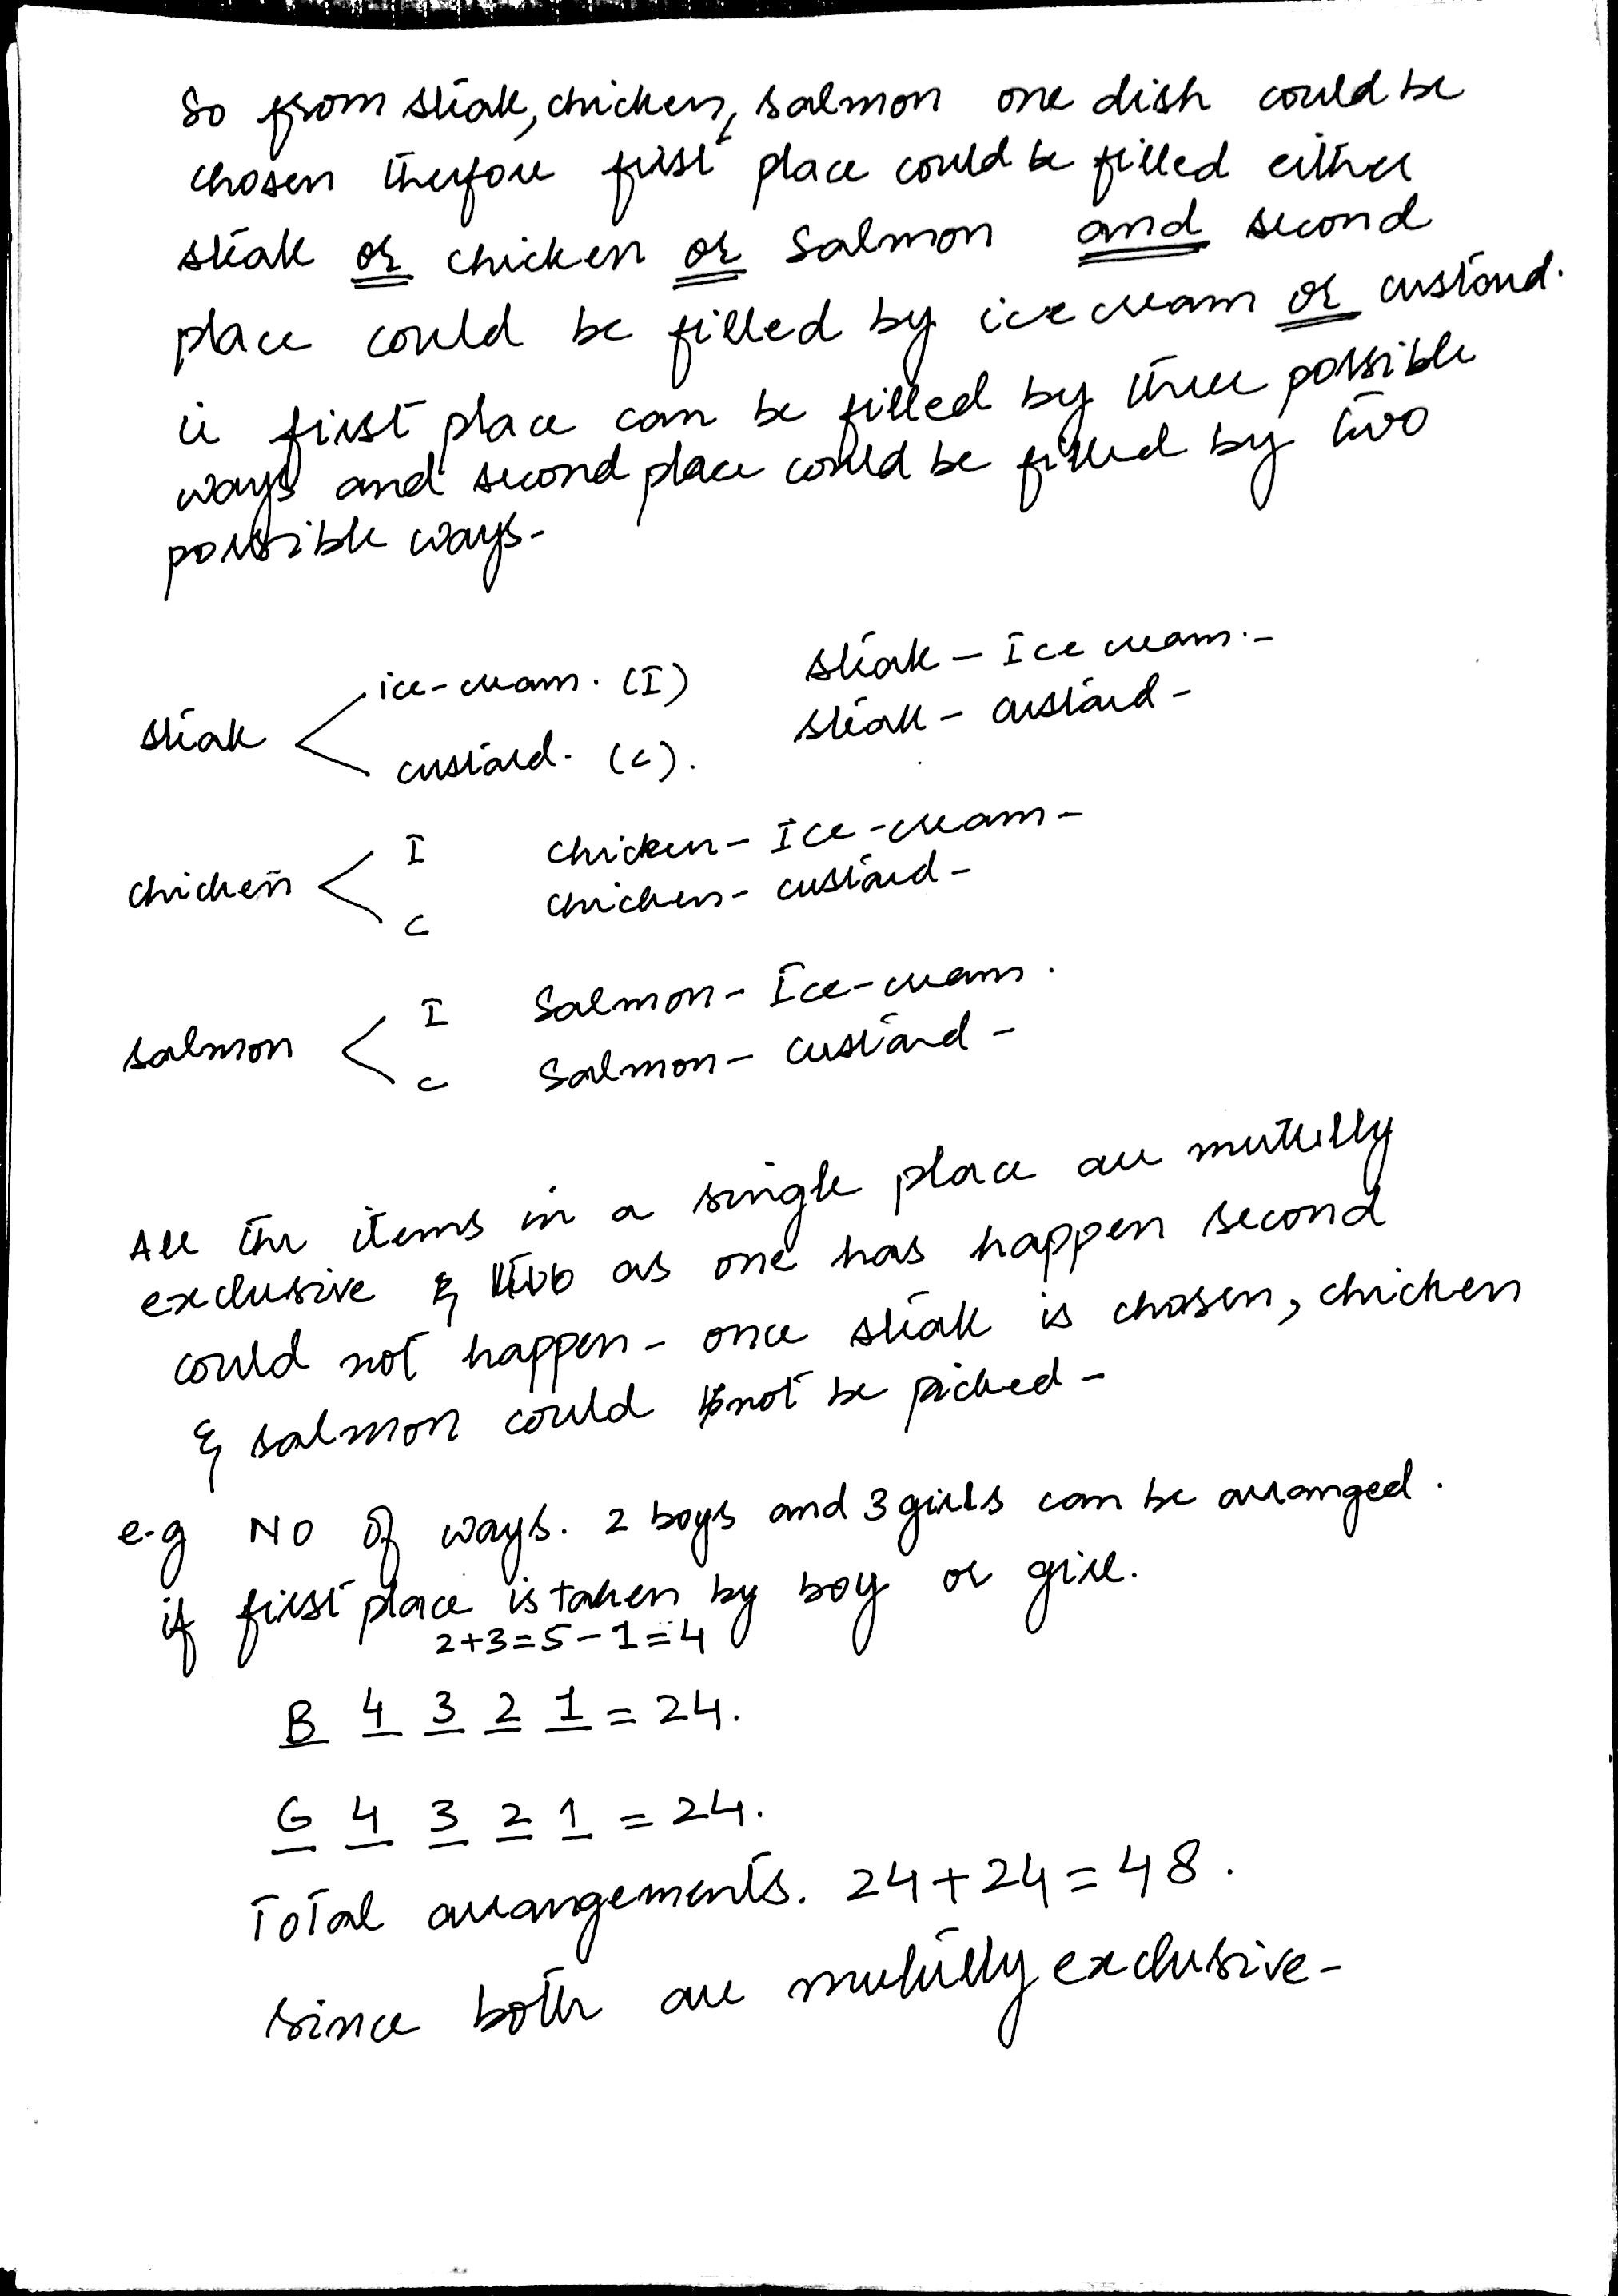 So from steak, chicken, salmon one dish could be
chosen therefore first place could be filled either
steak or chicken or Salmon and second
place could be filled by ice cream or custard.
ie first place can be filled by three possible
ways and second place could be filled by two
possible ways-
steak
ice-cream. (I)
custard. (c).
steak - Ice cream.-
steak - custard-
chicken
I
c
chicken- Ice-cream-
chicken- custard-
salmon
I
c
Salmon- Ice-cream.
Salmon- custard-
All the items in a single place are mutully
exclusive & as one has happen second
could not happen- once steak is chosen, chicken
& salmon could not be picked-
e.g No of ways. 2 boys and 3 girls can be arranged.
if first place is taken by boy or girl.
2+3=5-1=4
B 4 3 2 1 = 24.
G 4 3 2 1 = 24.
Total arrangements. 24+24=48.
since both are mutully exclusive-